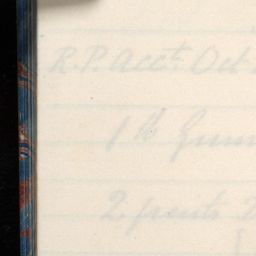 R.P. Acct. Oct
1 lb Gum
2 pints